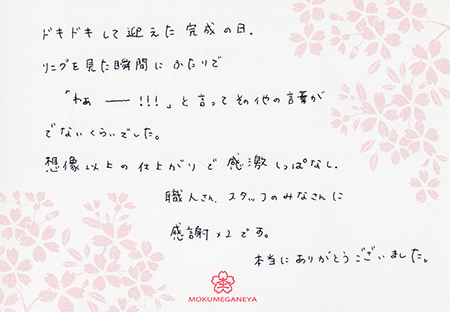 ドキドキして迎えた完成の日.
リングを見た瞬間にふたりで
「わぁ ── !!!」と言ってその他の言葉が
でないくらいでした。
想像以上の仕上がりで感激しっぱなし.
職人さん、スタッフのみなさんに
感謝×2です。
本当にありがとうございました。
MOKUMEGANEYA